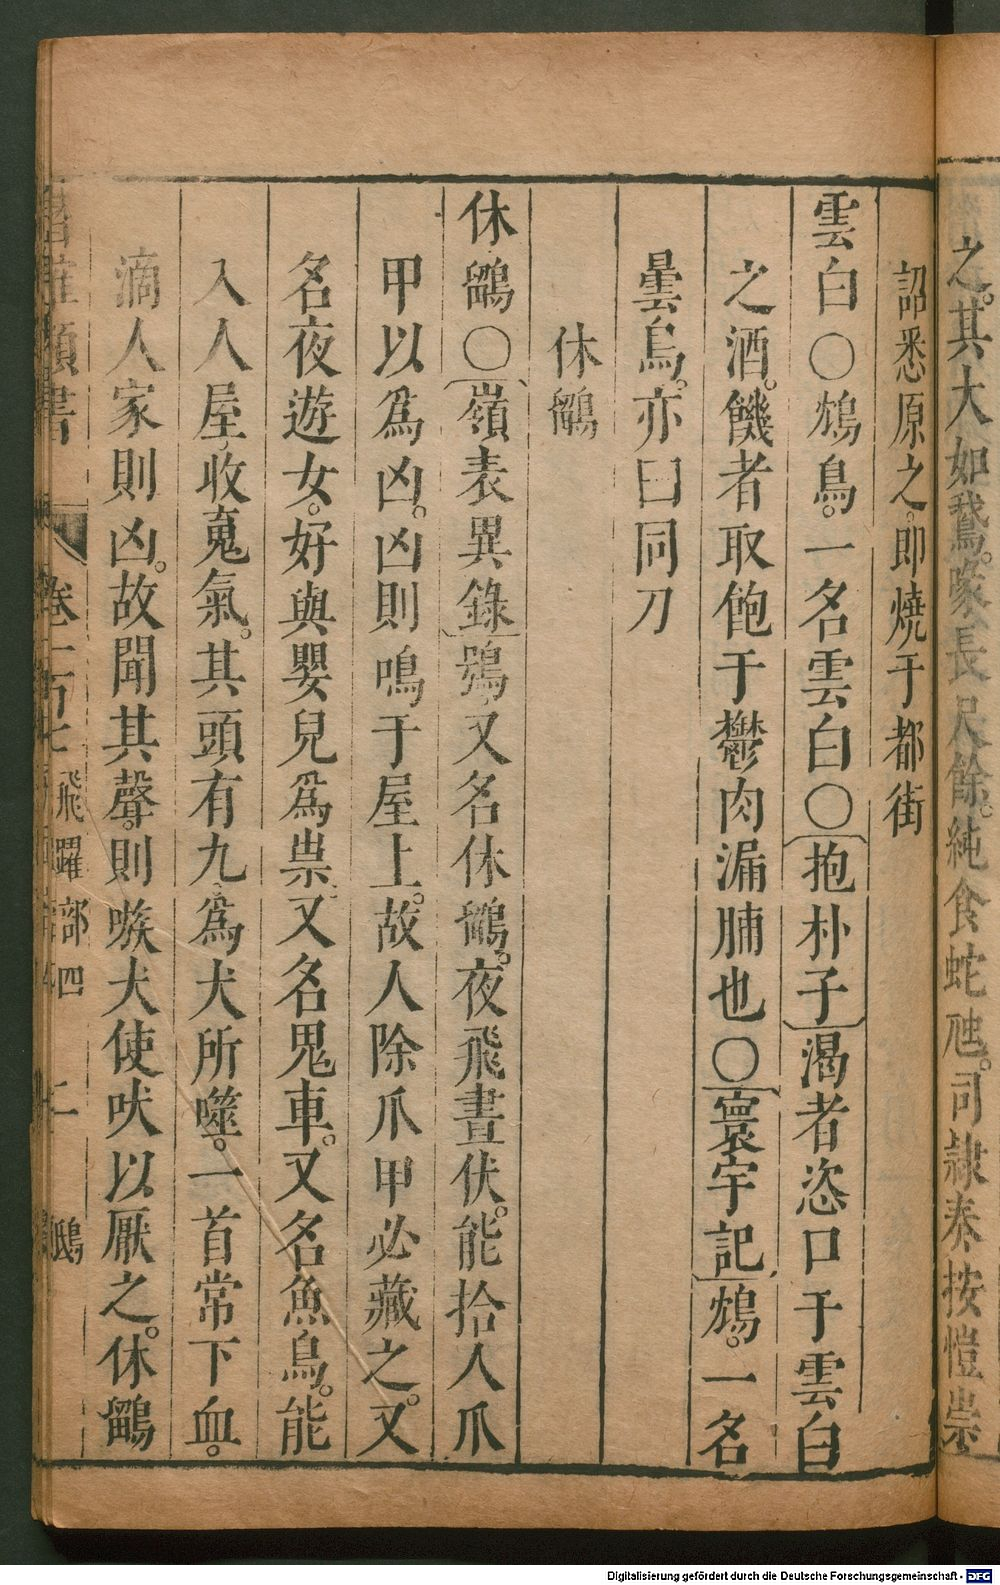 之。其大如鵞。喙長尺餘。純食蛇虺。司隷奏按愷崇
詔悉原之。即燒于都街
雲白〇鴆鳥。一名雲白〇抱朴子渴者恣口于雲白
之酒。饑者取飽于鬱肉漏脯也〇寰宇記鴆。一名
曇鳥。亦曰同力
休鶹
休鶹〇嶺表異錄鴞又名休鶹。夜飛晝伏。能拾人爪
甲以爲凶。凶則鳴于屋上。故人除爪甲必藏之。又
名夜遊女。好與嬰兒爲祟。又名鬼車。又名魚鳥。能
入人屋收䰟氣。其頭有九爲犬所噬。一首常下血。
滴人家則凶。故聞其聲。則嗾犬使吠以厭之。休鶹
類書
卷一百七 飛躍部四 二 鴟
Digitalisierung gefördert durch die Deutsche Forschungsgemeinschaft - DFG